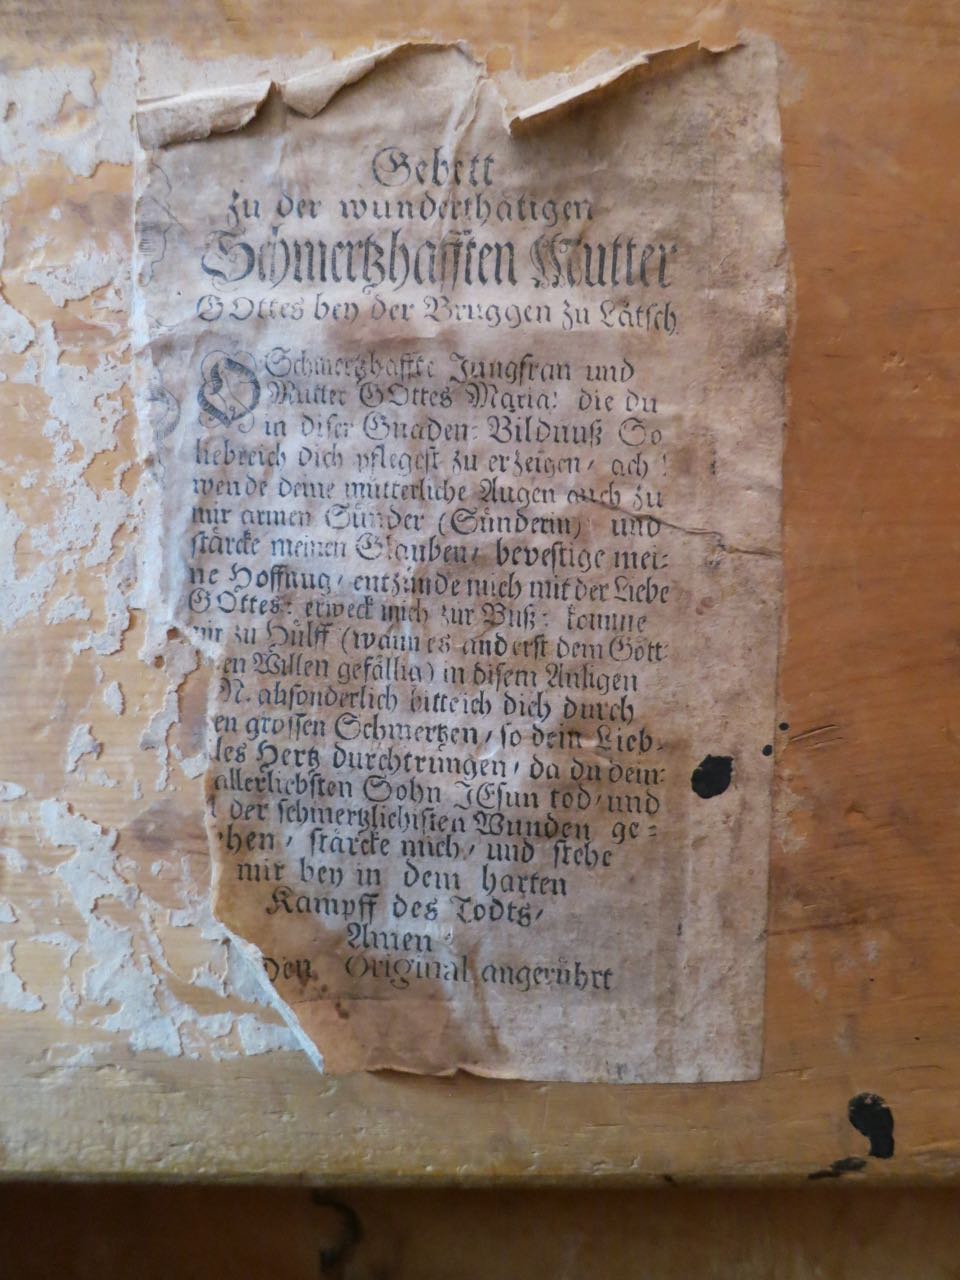 Gebett
zu der wunderthätigen
Schmertzhafften Mutter
GOttes bey der Bruggen zu Lätsch
O Schmertzhaffte Jungfrau und
Mutter GOttes Maria! die du
in diser Gnaden: Bildnuß So
liebreich dich pflegest zu erzeigen, ach!
wende deine mütterliche Augen auch zu
mir armen Sünder (Sünderin) und
stärcke meinen Glauben, bevestige mei-
ne Hoffnug, entzünde mich mit der Liebe
GOttes: erweck mich zur Buß: komme
mir zu Hülff (wann es anderst dem Gött:
en Willen gefällig) in disem Anligen
N. absonderlich bitte ich dich durch
en grossen Schmertzen, so dein Lieb-
les Hertz durchtrungen, da du dein:
allerliebsten Sohn JEsun tod, und
der schmertzlichisten Wunden ge=
hen, stärcke mich, und stehe
mir bey in dem harten
Kampff des Todts,
Amen.
Den Original angerührt